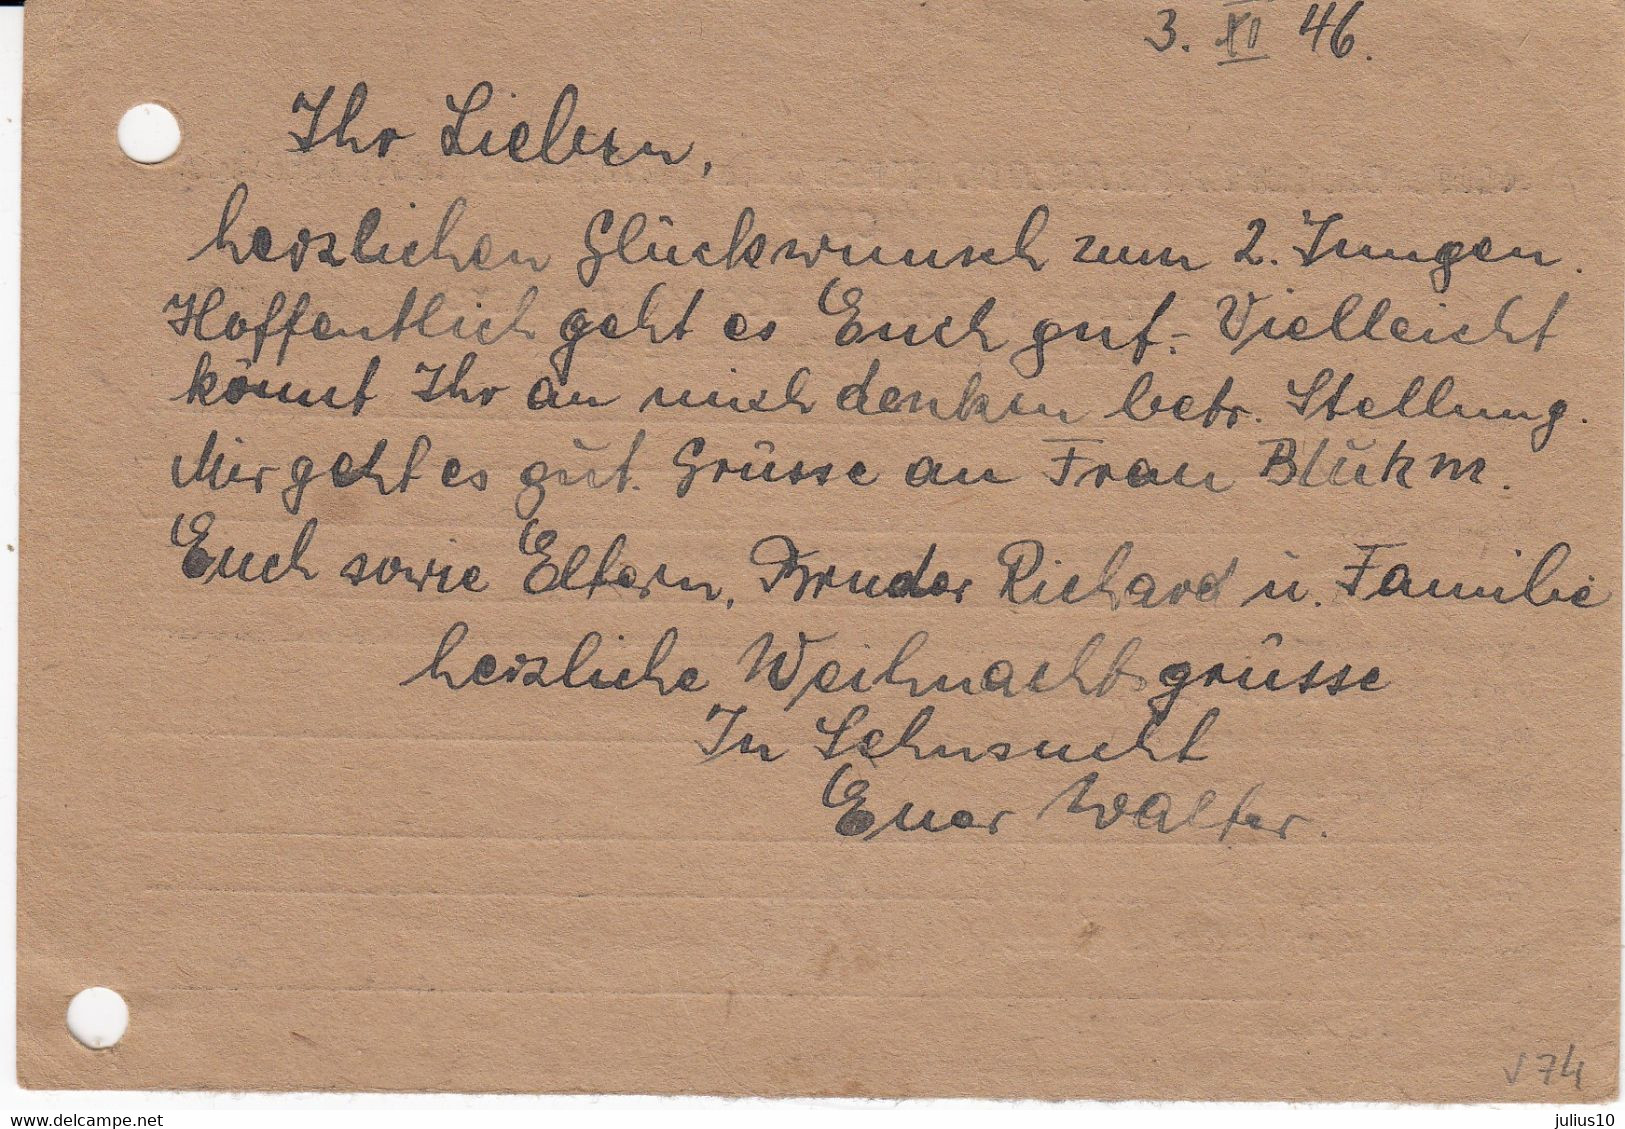 3. XI 46.
Ihr Lieben,
herzlichen Glückwunsch zum 2. Jungen.
Hoffentlich geht es Euch gut.- Vielleicht
könnt Ihr an mich denken betr. Stellung.
Mir geht es gut. Grüsse an Frau
Euch sowie Eltern, Bruder Richard u. Familie
herzliche Weihnachtsgrüsse
In Sehnsucht
Euer Walter.
74
delcampe.net
julius10